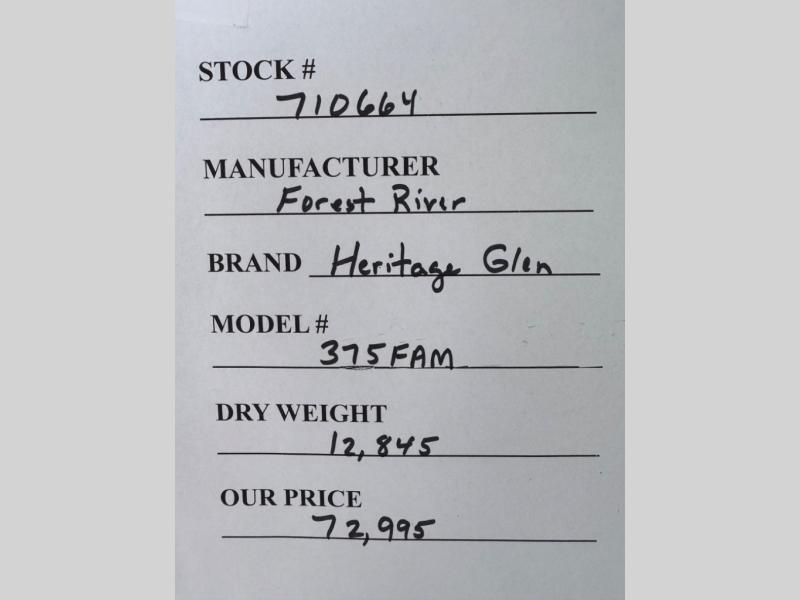 STOCK #
710664
MANUFACTURER
Forest River
BRAND Heritage Glen
MODEL #
375FAM
DRY WEIGHT
12,845
OUR PRICE
72,995